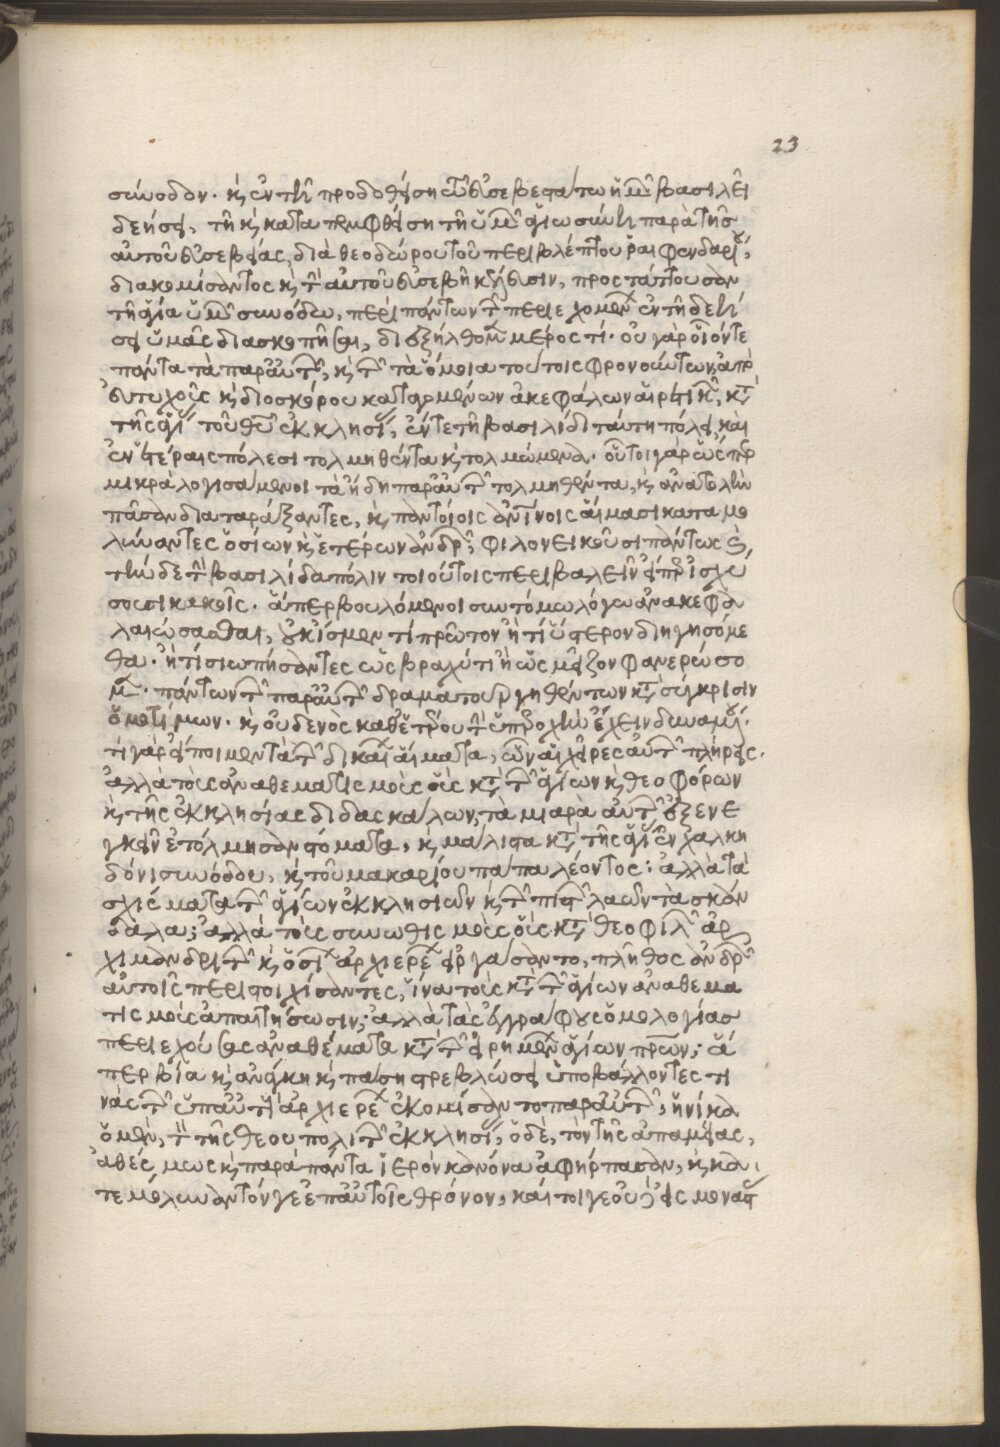 23
σύνοδον. κ(αὶ) ἐν τῆ προδοθείση τῶ εὐσεβεστάτω ἡμ(ῶν) βασιλεῖ
δεήσει, τῆ κ(αὶ) καταπεμφθείση τῆ ὑμ(ῶν) ἁγιωσύνη παρὰ τῆς
αὐτοῦ εὐσεβείας, διὰ θεοδώρου τοῦ περιβλέπτου ῥαιφενδαρί(ου),
διακομίσαντος κ(αὶ) τ(ὴν) αὐτοῦ εὐσεβῆ κέλευσιν, πρὸς ταύτην
τῆ ἁγία ὑμ(ῶν) συνόδω, περὶ πάντων τ(ῶν) περιεχομέν(ων) ἐν τῆ δεή
σει ὑμᾶς διασκοπῆσαι, διεξήλθομ(εν) μέρος τί. οὐ γὰρ οἷόν τε
πάντα τὰ παρ' αὐτ(ῶν), κ(αὶ) τ(ῶν) τὰ ὅμοια τούτοις φρονούντων, ἀπὸ
εὐτυχοῦς κ(αὶ) διοσκόρου καταρμένων ἀκεφάλων αἱρετικ(ῶν), κ(α)τ(ὰ)
τῆς ἁγί(ας) τοῦ θεοῦ ἐκκλησί(ας), ἔν τε τῆ βασιλίδι ταύτη πόλει καὶ
ἐν ἑτέραις πόλεσι τολμηθέντα κ(αὶ) τολμώμενα. οὗτοι γὰρ ὡσπερ
μικρὰ λογισάμενοι τὰ ἤδη παρ' αὐτ(ῶν) τολμηθέντα, κ(αὶ) ἀνατολὴν
πᾶσαν διαταράξαντες, κ(αὶ) παντοίοις αἵμασι καταμο
λύναντες ὁσίων κ(αὶ) ἑτέρων ἀνδρ(ῶν), φιλονεικοῦσι πάντως
τὴν δὲ τ(ὴν) βασιλίδα πόλιν τοιούτοις περιβαλεῖν εἴπερ ἰσχύ
σουσι κακοῖς. ἅπερ βουλόμενοι συντόμω λόγω ἀνακεφα
λαιώσασθαι, οὐκ ἴσμεν τί πρῶτον ἢ τί ὕστερον διηγησόμε
θα. ἢ τί σιωπήσαντες ὡς βραχύ τι ἢ ὡς μεῖζον φανερώσο
μ(εν). πάντων τ(ῶν) παρ' αὐτ(ῶν) δραματουργηθέντων κ(α)τ(ὰ) σύγκρισιν
ὁμοτίμων. κ(αὶ) οὐδενὸς καθ' ἑτέρου τ(ὴν) ὑπεροχὴν ἔχειν δυναμέν(ου).
τί γὰρ εἴποιμεν τὰ τ(ῶν) δικαί(ων) αἵματα, ὧν αἱ χεῖρες αὐτ(ῶν) πλήρεις.
ἀλλὰ τοὺς ἀναθεματισμοὺς οὓς κ(α)τ(ὰ) τ(ῶν) ἁγίων κ(αὶ) θεοφόρων
κ(αὶ) τῆς ἐκκλησίας διδασκάλων, τὰ μιαρὰ αὐτ(ῶν) ἐξενε
γκεῖν ἐτόλμησαν στόματα, κ(αὶ) μάλιστα κ(α)τ(ὰ) τῆς ἁγί(ας) ἐν χαλκη
δόνι συνόδου, κ(αὶ) τοῦ μακαρίου πάπα λέοντος; ἀλλὰ τὰ
σχίσματα τ(ῶν) ἁγίων ἐκκλησιῶν κ(αὶ) τ(ῶν) πιστ(ῶν) λαῶν τὰ σκάν
δαλα; ἀλλὰ τοὺς συνωθισμοὺς οὓς κ(α)τ(ὰ) θεοφιλ(ῶν) ἀρ
χιμανδριτ(ῶν) κ(αὶ) ὁσί(ων) ἀρχιερέ(ων) εἰργάσαντο, πλῆθος ἀνδρ(ῶν)
αὐτοῖς περιστοιχίσαντες, ἵνα τοὺς κ(α)τ(ὰ) τ(ῶν) ἁγίων ἀναθεμα
τισμοὺς ἀπαιτήσωσιν; ἀλλὰ τὰς ἐγγράφους ὁμολογίας
περιεχούσας ἀναθέματα κ(α)τ(ὰ) τ(ῶν) εἰρημέν(ων) ἁγίων π(ατέ)ρων; ἅ
περ βία κ(αὶ) ἀνάγκη κ(αὶ) πάση στρεβλώσει ὑποβάλλοντες τι
νὰς τ(ῶν) ὑπ' αὐτ(οὺς) ἀρχιερέ(ων) ἐκομίσαντο παρ' αὐτ(ῶν), ἡνίκα
ὁ μὲν, τ(ὸν) τῆς θεουπολιτ(ῶν) ἐκκλησί(ας), ὁ δὲ, τὸν τῆς ἀπαμείας,
ἀθέσμως κ(αὶ) παρὰ πάντα ἱερὸν κανόνα ἀφήρπασαν, κ(αὶ) κα
τεμόλυναν τόν γε ἐπ' αὐτοῖς θρόνον, καίτοιγε